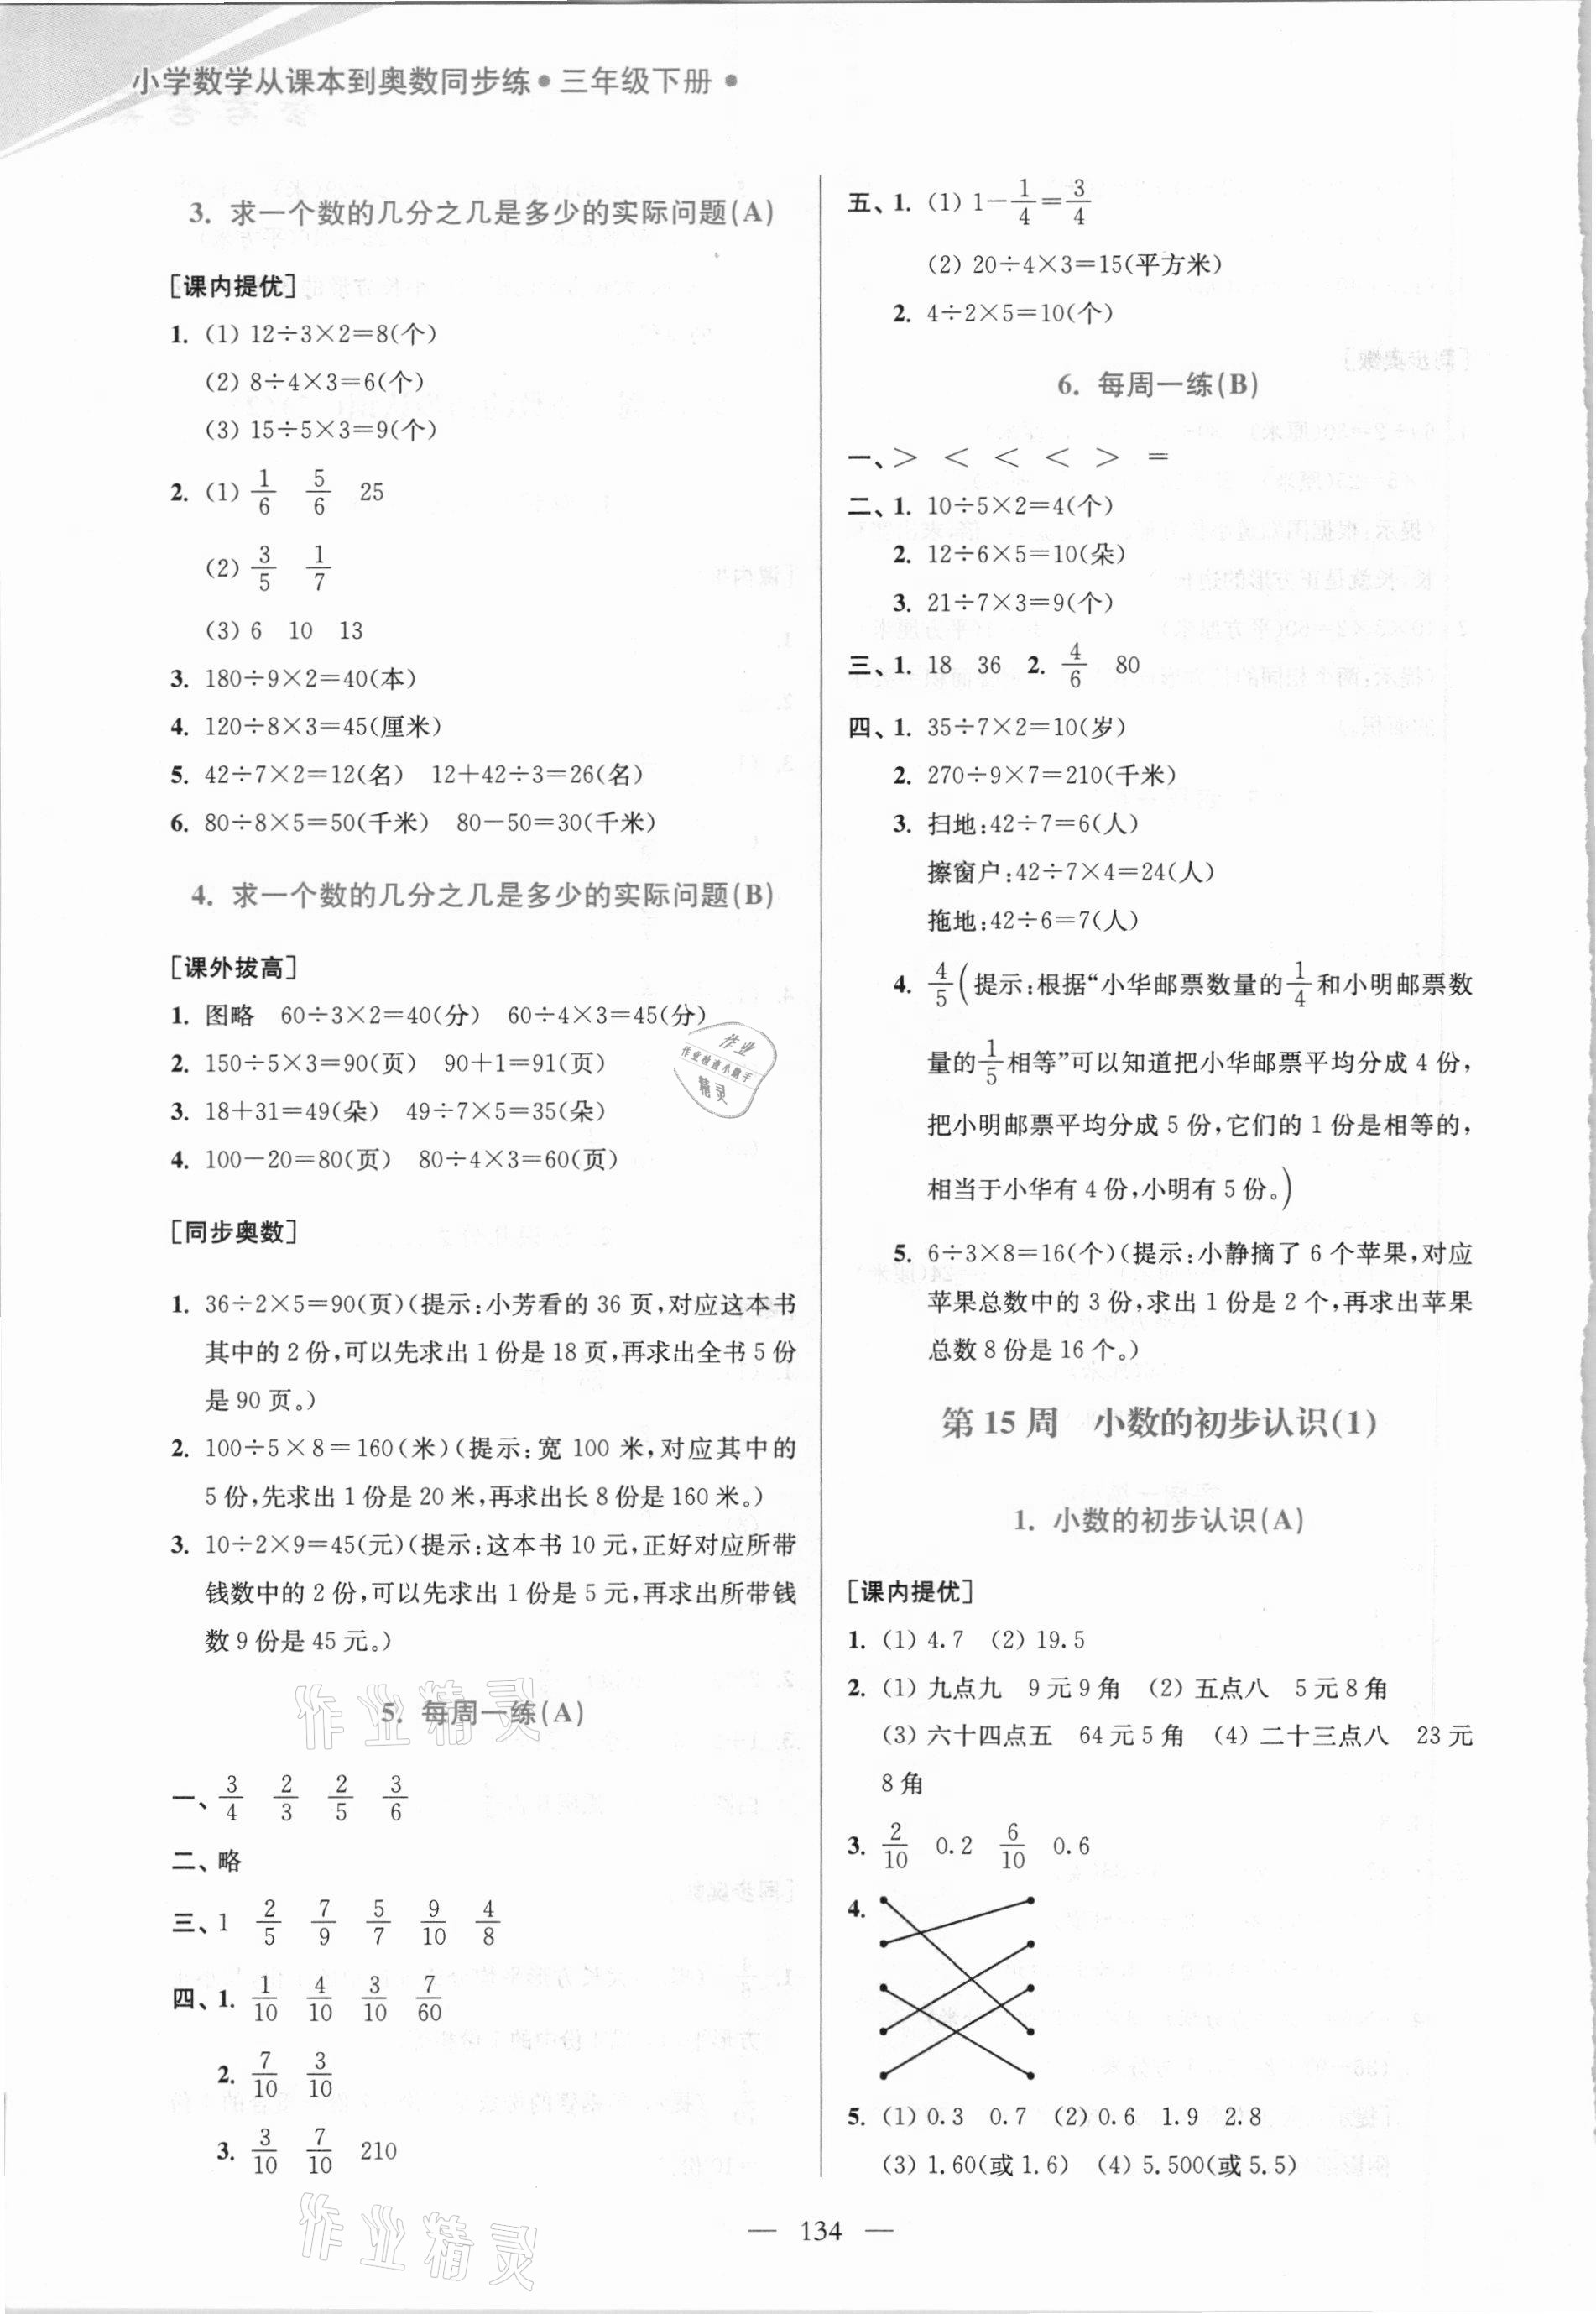 小学数学从课本到奥数同步练·三年级下册·
3. 求一个数的几分之几是多少的实际问题(A)
[课内提优]
1. (1) 12÷3×2=8(个)
(2) 8÷4×3=6(个)
(3) 15÷5×3=9(个)
2. (1) 1/6 5/6 25
(2) 3/5 1/7
(3) 6 10 13
3. 180÷9×2=40(本)
4. 120÷8×3=45(厘米)
5. 42÷7×2=12(名) 12+42÷3=26(名)
6. 80÷8×5=50(千米) 80-50=30(千米)
4. 求一个数的几分之几是多少的实际问题(B)
[课外拔高]
1. 图略 60÷3×2=40(分) 60÷4×3=45(分)
2. 150÷5×3=90(页) 90+1=91(页)
3. 18+31=49(朵) 49÷7×5=35(朵)
4. 100-20=80(页) 80÷4×3=60(页)
[同步奥数]
1. 36÷2×5=90(页)(提示:小芳看的 36 页,对应这本书
其中的 2 份,可以先求出 1 份是 18 页,再求出全书 5 份
是 90 页。)
2. 100÷5×8=160(米)(提示:宽 100 米,对应其中的
5 份,先求出 1 份是 20 米,再求出长 8 份是 160 米。)
3. 10÷2×9=45(元)(提示:这本书 10 元,正好对应所带
钱数中的 2 份,可以先求出 1 份是 5 元,再求出所带钱
数 9 份是 45 元。)
5. 每周一练(A)
一、3/4 2/3 2/5 3/6
二、略
三、1 2/5 7/9 5/7 9/10 4/8
四、1. 1/10 4/10 3/10 7/60
2. 7/10 3/10
3. 3/10 7/10 210
五、1. (1) 1-1/4=3/4
(2) 20÷4×3=15(平方米)
2. 4÷2×5=10(个)
6. 每周一练(B)
一、> < < < > =
二、1. 10÷5×2=4(个)
2. 12÷6×5=10(朵)
3. 21÷7×3=9(个)
三、1. 18 36 2. 4/6 80
四、1. 35÷7×2=10(岁)
2. 270÷9×7=210(千米)
3. 扫地:42÷7=6(人)
擦窗户:42÷7×4=24(人)
拖地:42÷6=7(人)
4. 4/5(提示:根据“小华邮票数量的1/4和小明邮票数
量的1/5相等”可以知道把小华邮票平均分成 4 份,
把小明邮票平均分成 5 份,它们的 1 份是相等的,
相当于小华有 4 份,小明有 5 份。)
5. 6÷3×8=16(个)(提示:小静摘了 6 个苹果,对应
苹果总数中的 3 份,求出 1 份是 2 个,再求出苹果
总数 8 份是 16 个。)
第 15 周 小数的初步认识(1)
1. 小数的初步认识(A)
[课内提优]
1. (1) 4.7 (2) 19.5
2. (1) 九点九 9 元 9 角 (2) 五点八 5 元 8 角
(3) 六十四点五 64 元 5 角 (4) 二十三点八 23 元
8 角
3. 2/10 0.2 6/10 0.6
4.
5. (1) 0.3 0.7 (2) 0.6 1.9 2.8
(3) 1.60(或 1.6) (4) 5.500(或 5.5)
— 134 —
作业
作业检查小助手
精灵
作业精灵
作业精灵